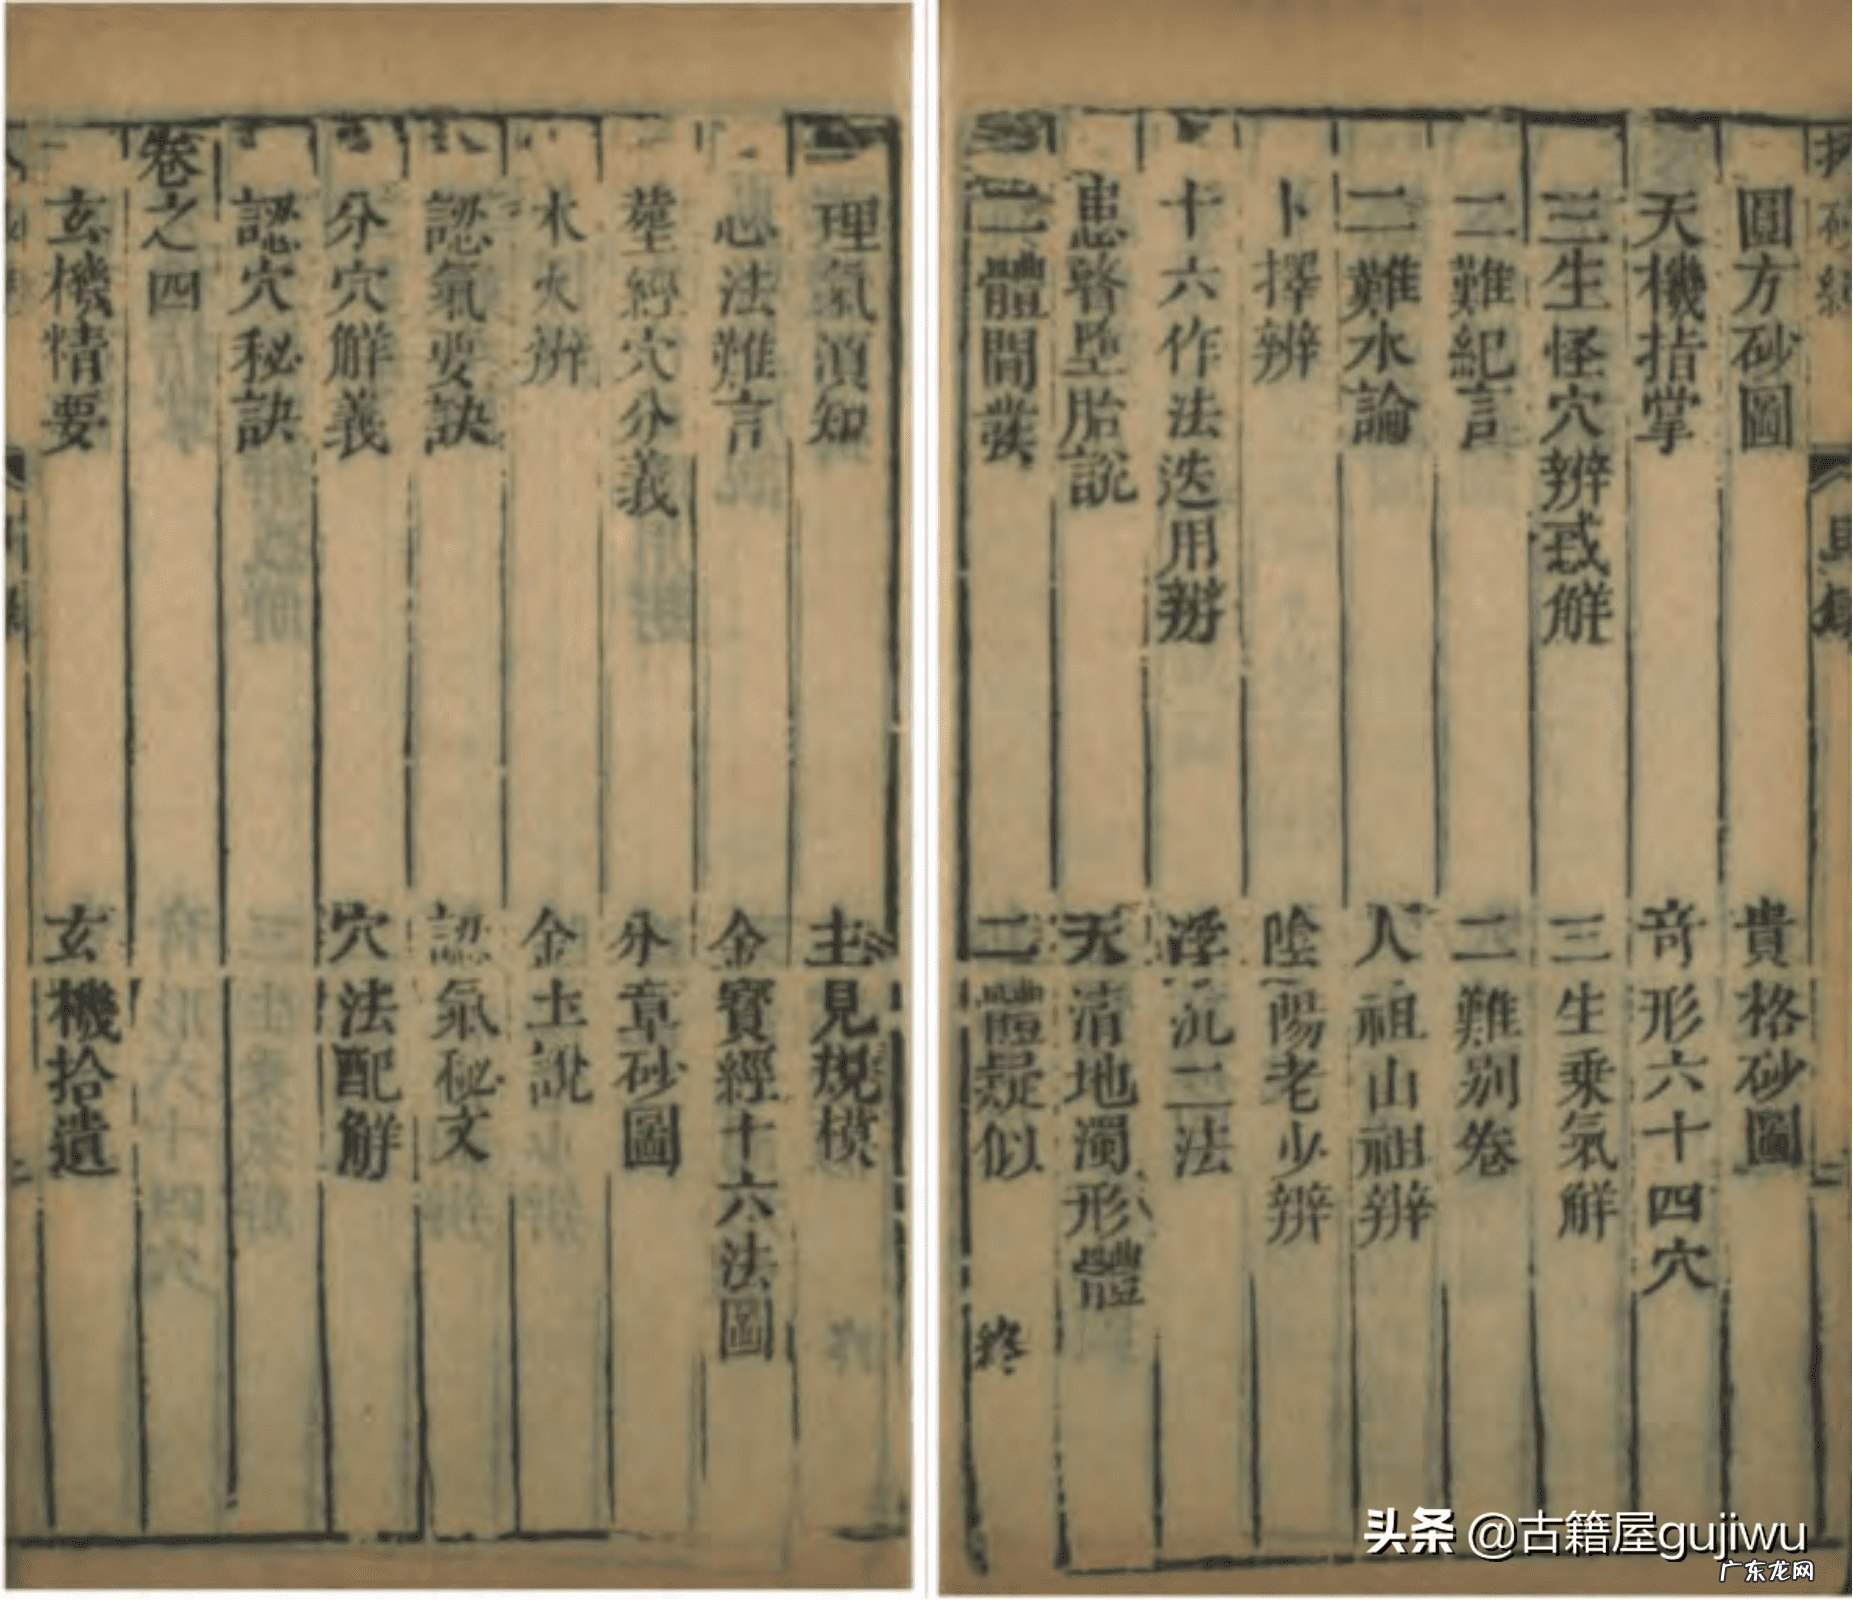 理氣湏知 主見規模
心法難言 金寶經十六法圖
塟經穴分義 分章砂圖
木火辨 金土說
認氣要訣 認氣秘文
分穴觧義 穴法配觧
認穴秘訣
卷之四
玄機精要 玄機拾遺
圓方砂圖 貴格砂圖
天機指掌 奇形六十四穴
三生怪穴辨惑觧 三生乘氣觧
二難紀言 二難別卷
二難水論 人祖山祖辨
卜擇辨 陰陽老少辨
十六作法迭用辨 浮沉二法
患瞽墮胎說 天清地濁形體
二體間發 二體疑似 終
目錄 二
头条 @古籍屋gujiwu
广东龙网